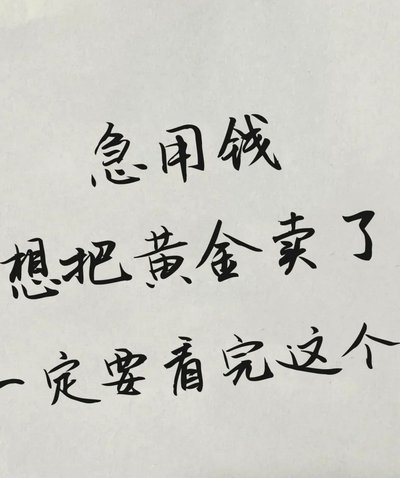 急用钱
想把黄金卖了
一定要看完这个